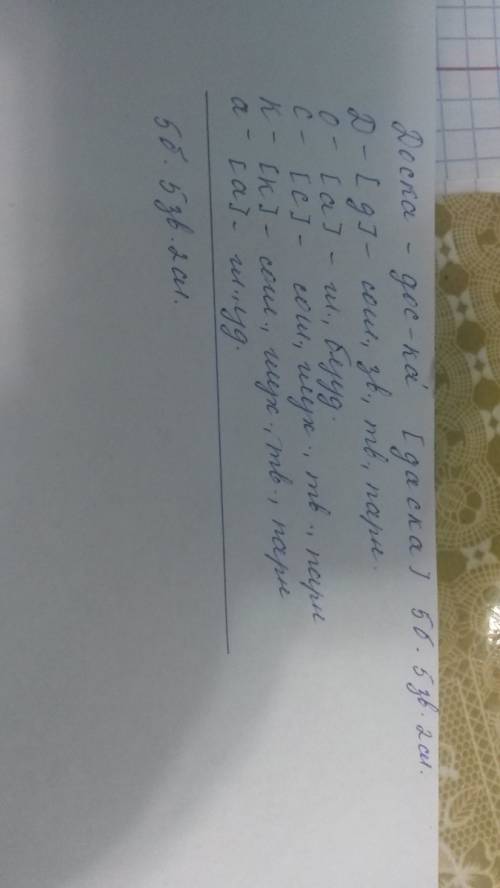 Доска - дос-ка́ [даска] 5б. 5зв. 2сл.
Д - [д] - согл, зв, тв, парн.
О - [а] - гл., безуд.
С - [с] - согл, глух., тв., парн
К - [к] - согл., глух., тв., парн
а - [а] - гл., уд.
5б. 5зв. 2сл.